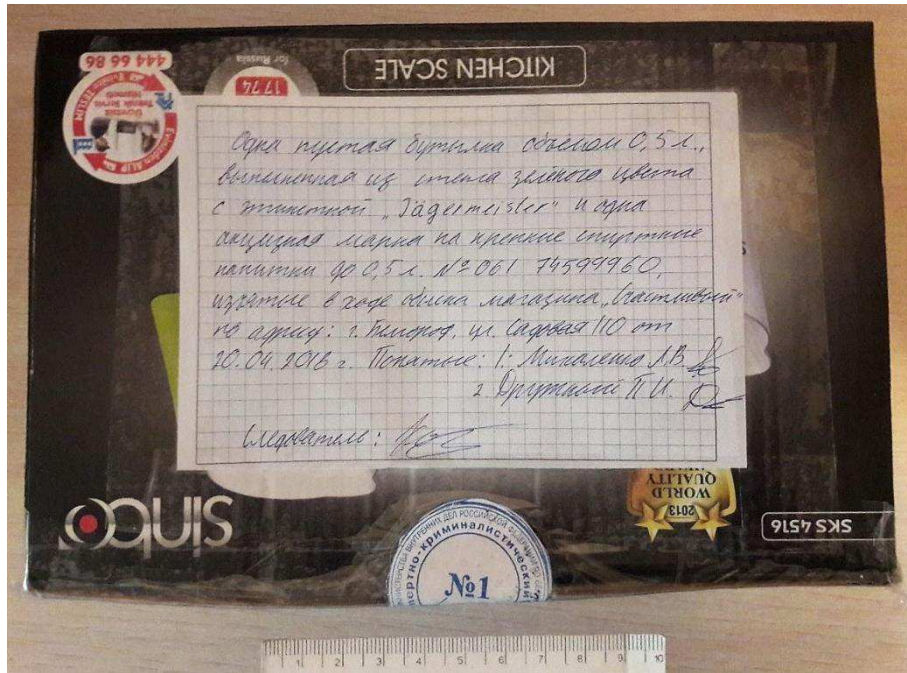 444 66 86
for Russia
1774
KITCHEN SCALE
Одна пустая бутылка объёмом 0,5 л.,
выполненная из стекла зеленого цвета
с этикеткой „Jägermeister" и одна
акцизная марка на крепкие спиртные
напитки до 0,5 л. №061 74599960,
изъятые в ходе обыска магазина „Счастливый"
по адресу: г. Белгород, ул. Садовая 110 от
20.04.2016 г. Понятые: 1: Миколенко Л.В.
2 Дружный П.И.
Следователь:
sinbo
2013
WORLD
QUALITY
SKS 4516
МИНИСТЕРСТВО ВНУТРЕННИХ ДЕЛ РОССИЙСКОЙ ФЕДЕРАЦИИ
экспертно-криминалистический
№1
1 2 3 4 5 6 7 8 9 10